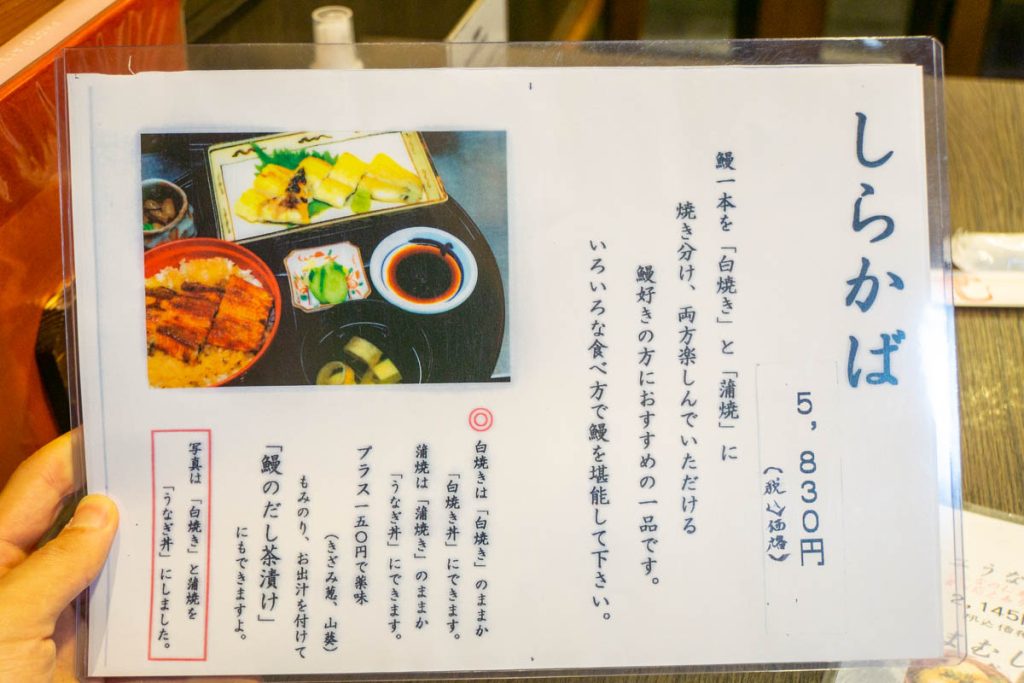 しらかば
5,830円
(税込価格)
鰻一本を「白焼き」と「蒲焼」に
焼き分け、両方楽しんでいただける
鰻好きの方におすすめの一品です。
いろいろな食べ方で鰻を堪能して下さい。
◎
白焼きは「白焼き」のままか
「白焼き丼」にできます。
蒲焼は「蒲焼き」のままか
「うなぎ丼」にできます。
プラス一五〇円で薬味
(きざみ葱、山葵)
もみのり、お出汁を付けて
「鰻のだし茶漬け」
にもできますよ。
写真は「白焼き」と蒲焼を
「うなぎ丼」にしました。
こうな
2,145円
まむし